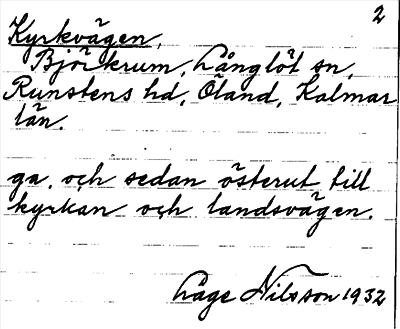 2
Kyrkvägen,
Björkrum, Långlöt sn,
Runstens hd, Öland, Kalmar
län.
ga. och sedan österut till
kyrkan och landsvägen.
Låge Nilsson 1932